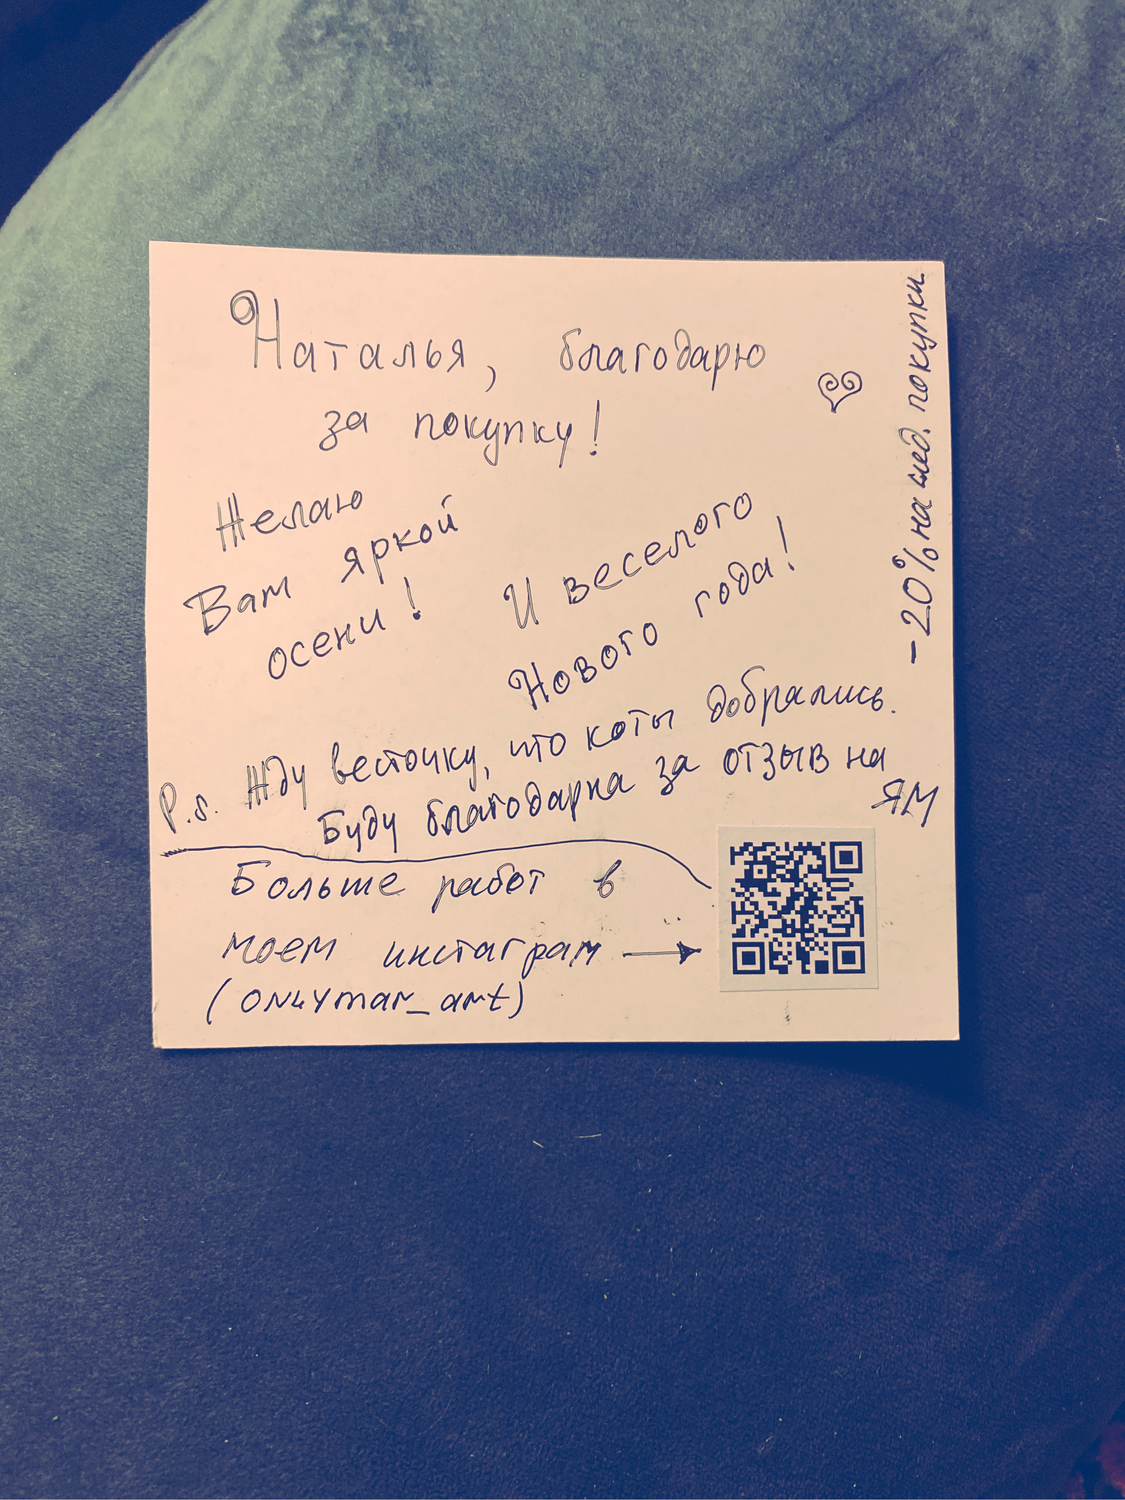 Наталья, благодарю
за покупку!
Желаю
Вам яркой
осени!
И веселого
Нового года!
P.s. Жду весточку, что коты добрались.
Буду благодарна за отзыв на
ЯМ
Больше работ в
моем инстаграм →
(onlymar_art)
-20% на след. покупки.